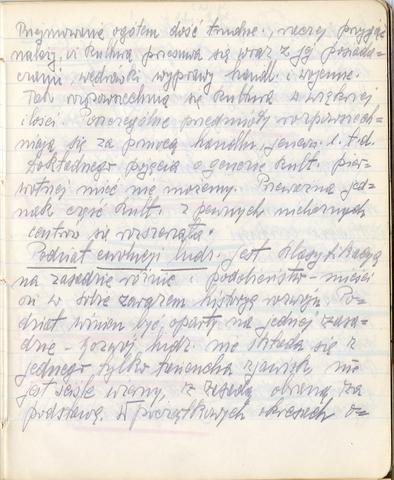 Przejmowanie ogółem dość trudne, raczej przyjąć
należy, iż kultura przesuwa się wraz z jej posiada-
czami, wędrówki wyprawy handl. i wojenne.
Tak rozpowszechnia się kultura w większej
ilości. Poszczególne przedmioty rozpowszech-
niają się za pomocą handlu, jeńców i. t. d.
dokładnego pojęcia o genezie kult. pier-
wotnej mieć nie możemy. Przeważna jed-
nak część kult. z pewnych nielicznych
centrów się rozszerzała.
Podział ewolucji ludz. jest klasyfikacją
na zasadzie różnic i podobieństw - mieści
on w sobie zarazem historyę rozwoju. Po-
dział winien być oparty na jednej zasa-
dzie - rozwój ludz. nie składa się z
jednego tylko łańcucha zjawisk, nie
jest ściśle wzany, iż zasadą obraną za
podstawę. W początkowych okresach o-